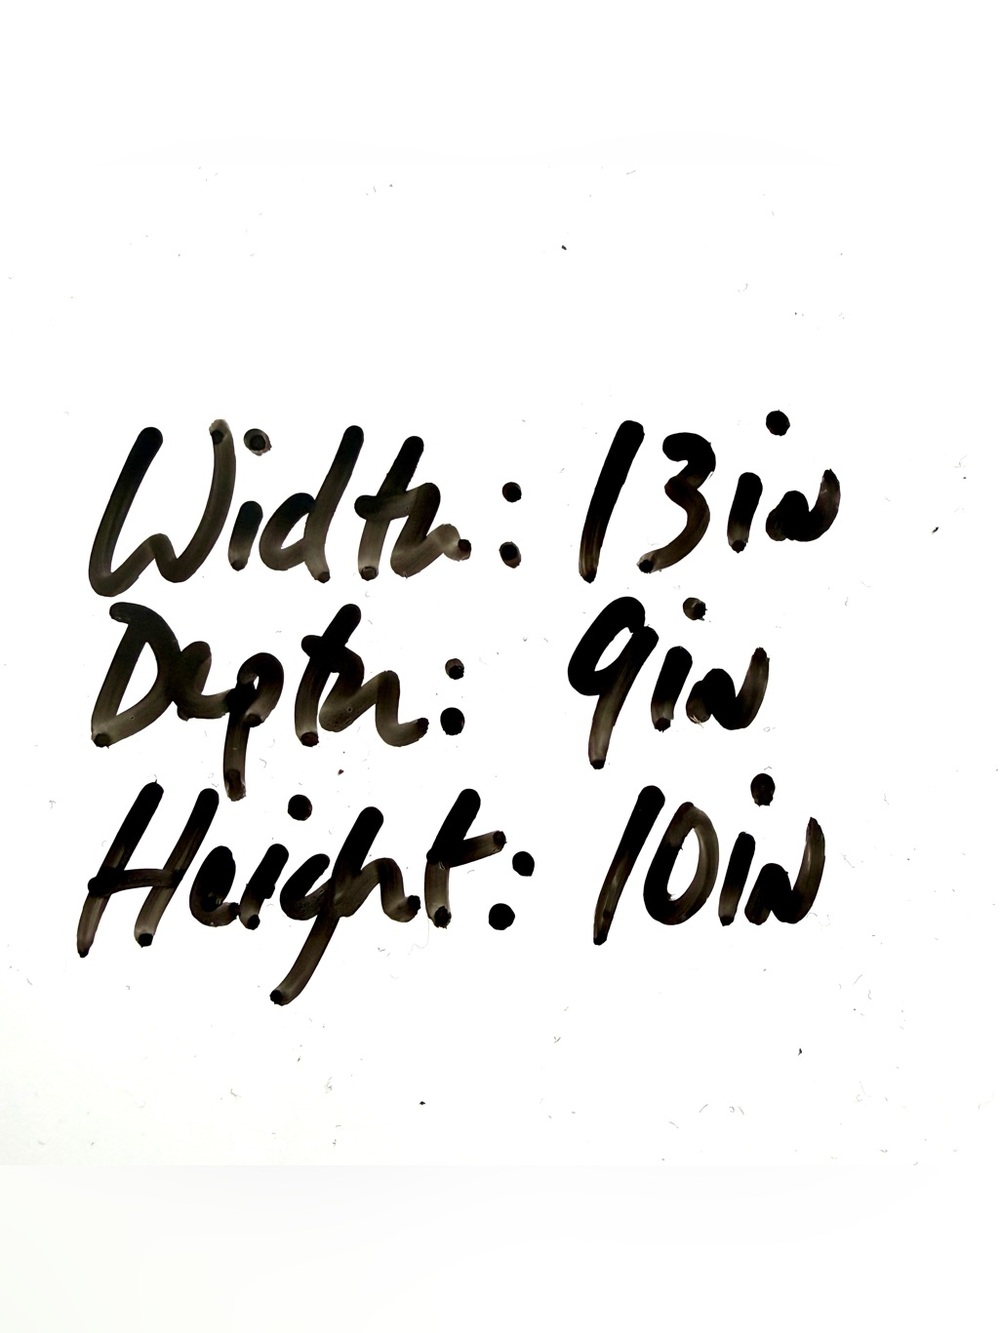 Width: 13in
Depth: 9in
Height: 10in